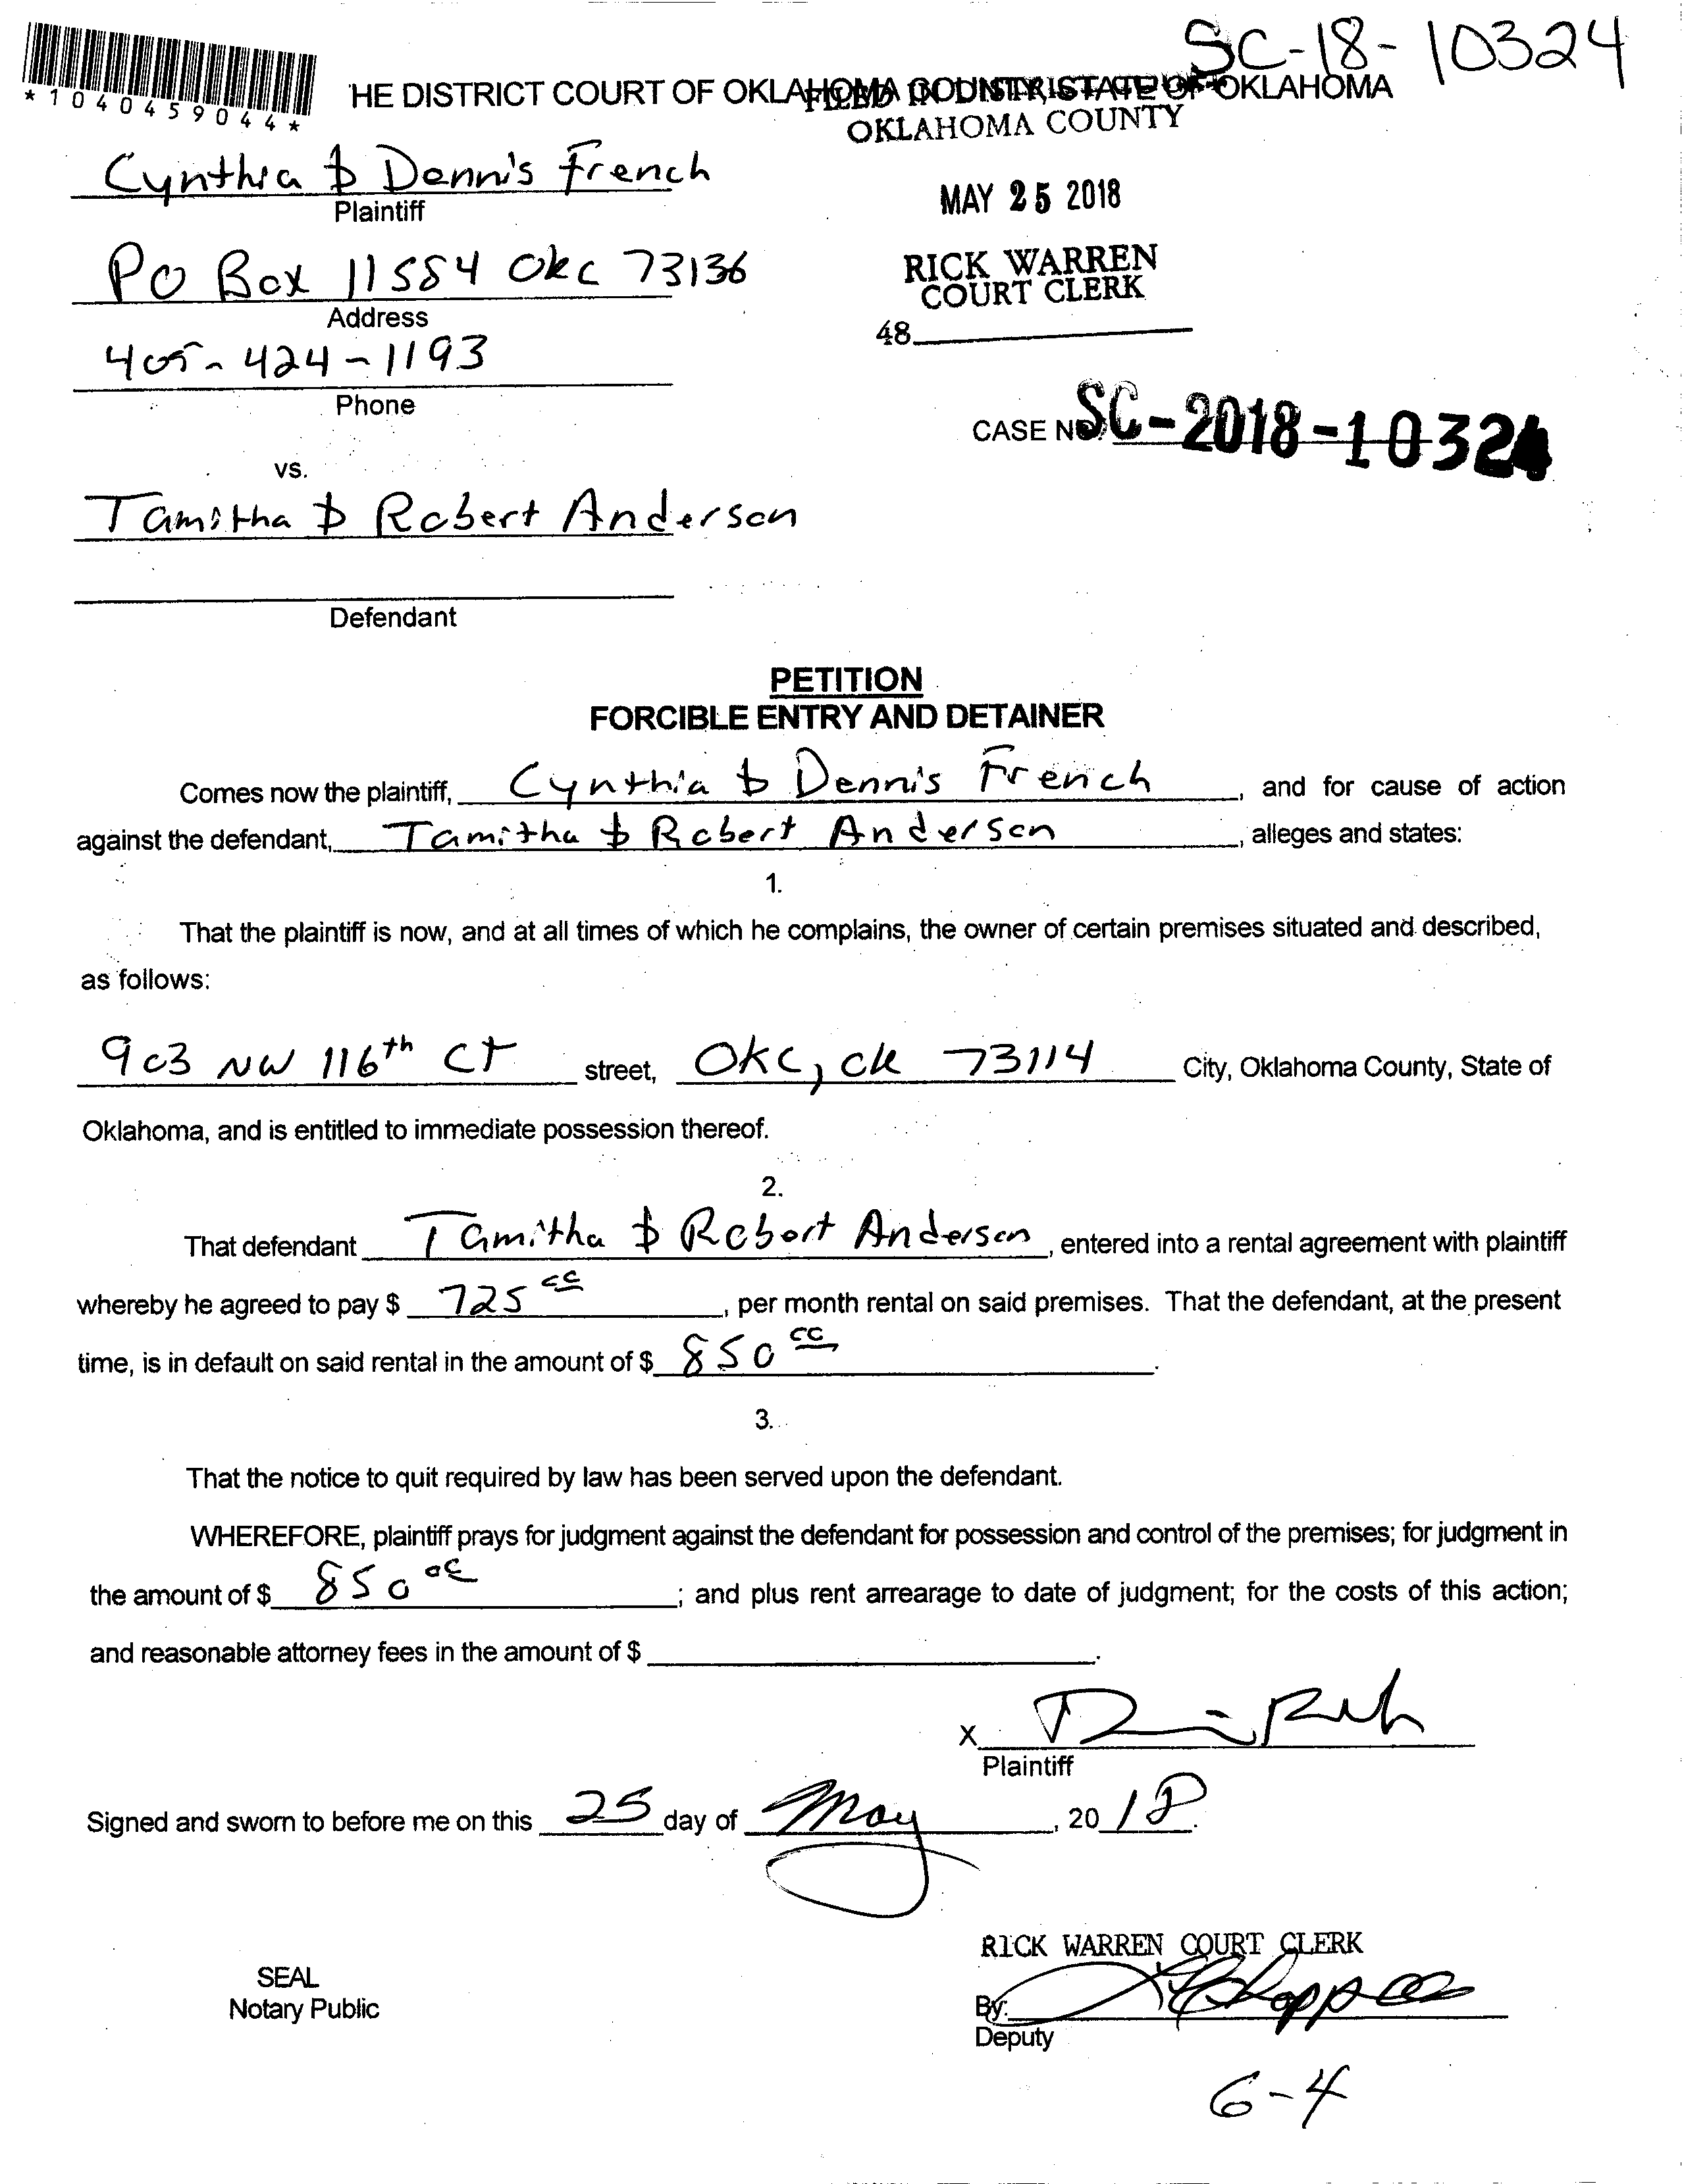 SC-18-10324
*1040459044*
HE DISTRICT COURT OF OKLAHOMA COUNTY, STATE OF OKLAHOMA
FILED IN DISTRICT
OKLAHOMA COUNTY
Cynthia & Dennis French
Plaintiff
MAY 25 2018
PO Box 11554 Okc 73136
Address
RICK WARREN
COURT CLERK
48
405-424-1193
Phone
CASE NO. SC-2018-10324
vs.
Tamitha & Robert Anderson
Defendant
PETITION
FORCIBLE ENTRY AND DETAINER
Comes now the plaintiff, Cynthia & Dennis French, and for cause of action
against the defendant, Tamitha & Robert Anderson, alleges and states:
1.
That the plaintiff is now, and at all times of which he complains, the owner of certain premises situated and described,
as follows:
903 NW 116th Ct street, OKC, ok 73114 City, Oklahoma County, State of
Oklahoma, and is entitled to immediate possession thereof.
2.
That defendant Tamitha & Robert Anderson, entered into a rental agreement with plaintiff
whereby he agreed to pay $ 725 00, per month rental on said premises. That the defendant, at the present
time, is in default on said rental in the amount of $ 850 00.
3.
That the notice to quit required by law has been served upon the defendant.
WHEREFORE, plaintiff prays for judgment against the defendant for possession and control of the premises; for judgment in
the amount of $ 850 00; and plus rent arrearage to date of judgment; for the costs of this action;
and reasonable attorney fees in the amount of $ .
X
Plaintiff
Signed and sworn to before me on this 25 day of May, 20 18.
RICK WARREN COURT CLERK
SEAL
Notary Public
By:
Deputy
6-4